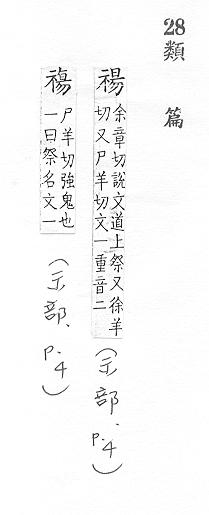 28類篇
禓 余章切說文道上祭又徐羊
切又尸羊切文一重音二
(示部, p.4)
禓 尸羊切強鬼也
一曰祭名文一
(示部, p.4)